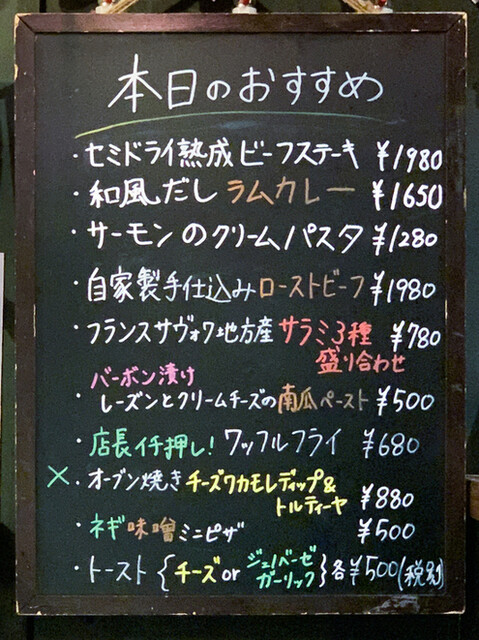 本日のおすすめ
・セミドライ熟成ビーフステーキ ¥1980
・和風だしラムカレー ¥1650
・サーモンのクリームパスタ ¥1280
・自家製手仕込みローストビーフ ¥1980
・フランスサヴォワ地方産サラミ3種 ¥780
盛り合わせ
バーボン漬け
・レーズンとクリームチーズの南瓜ペースト ¥500
・店長イチ押し!ワッフルフライ ¥680
×・オーブン焼きチーズワカモレディップ&
トルティーヤ ¥880
・ネギ味噌ミニピザ ¥500
・トースト{チーズor ジェノベーゼ
ガーリック}各¥500(税別)